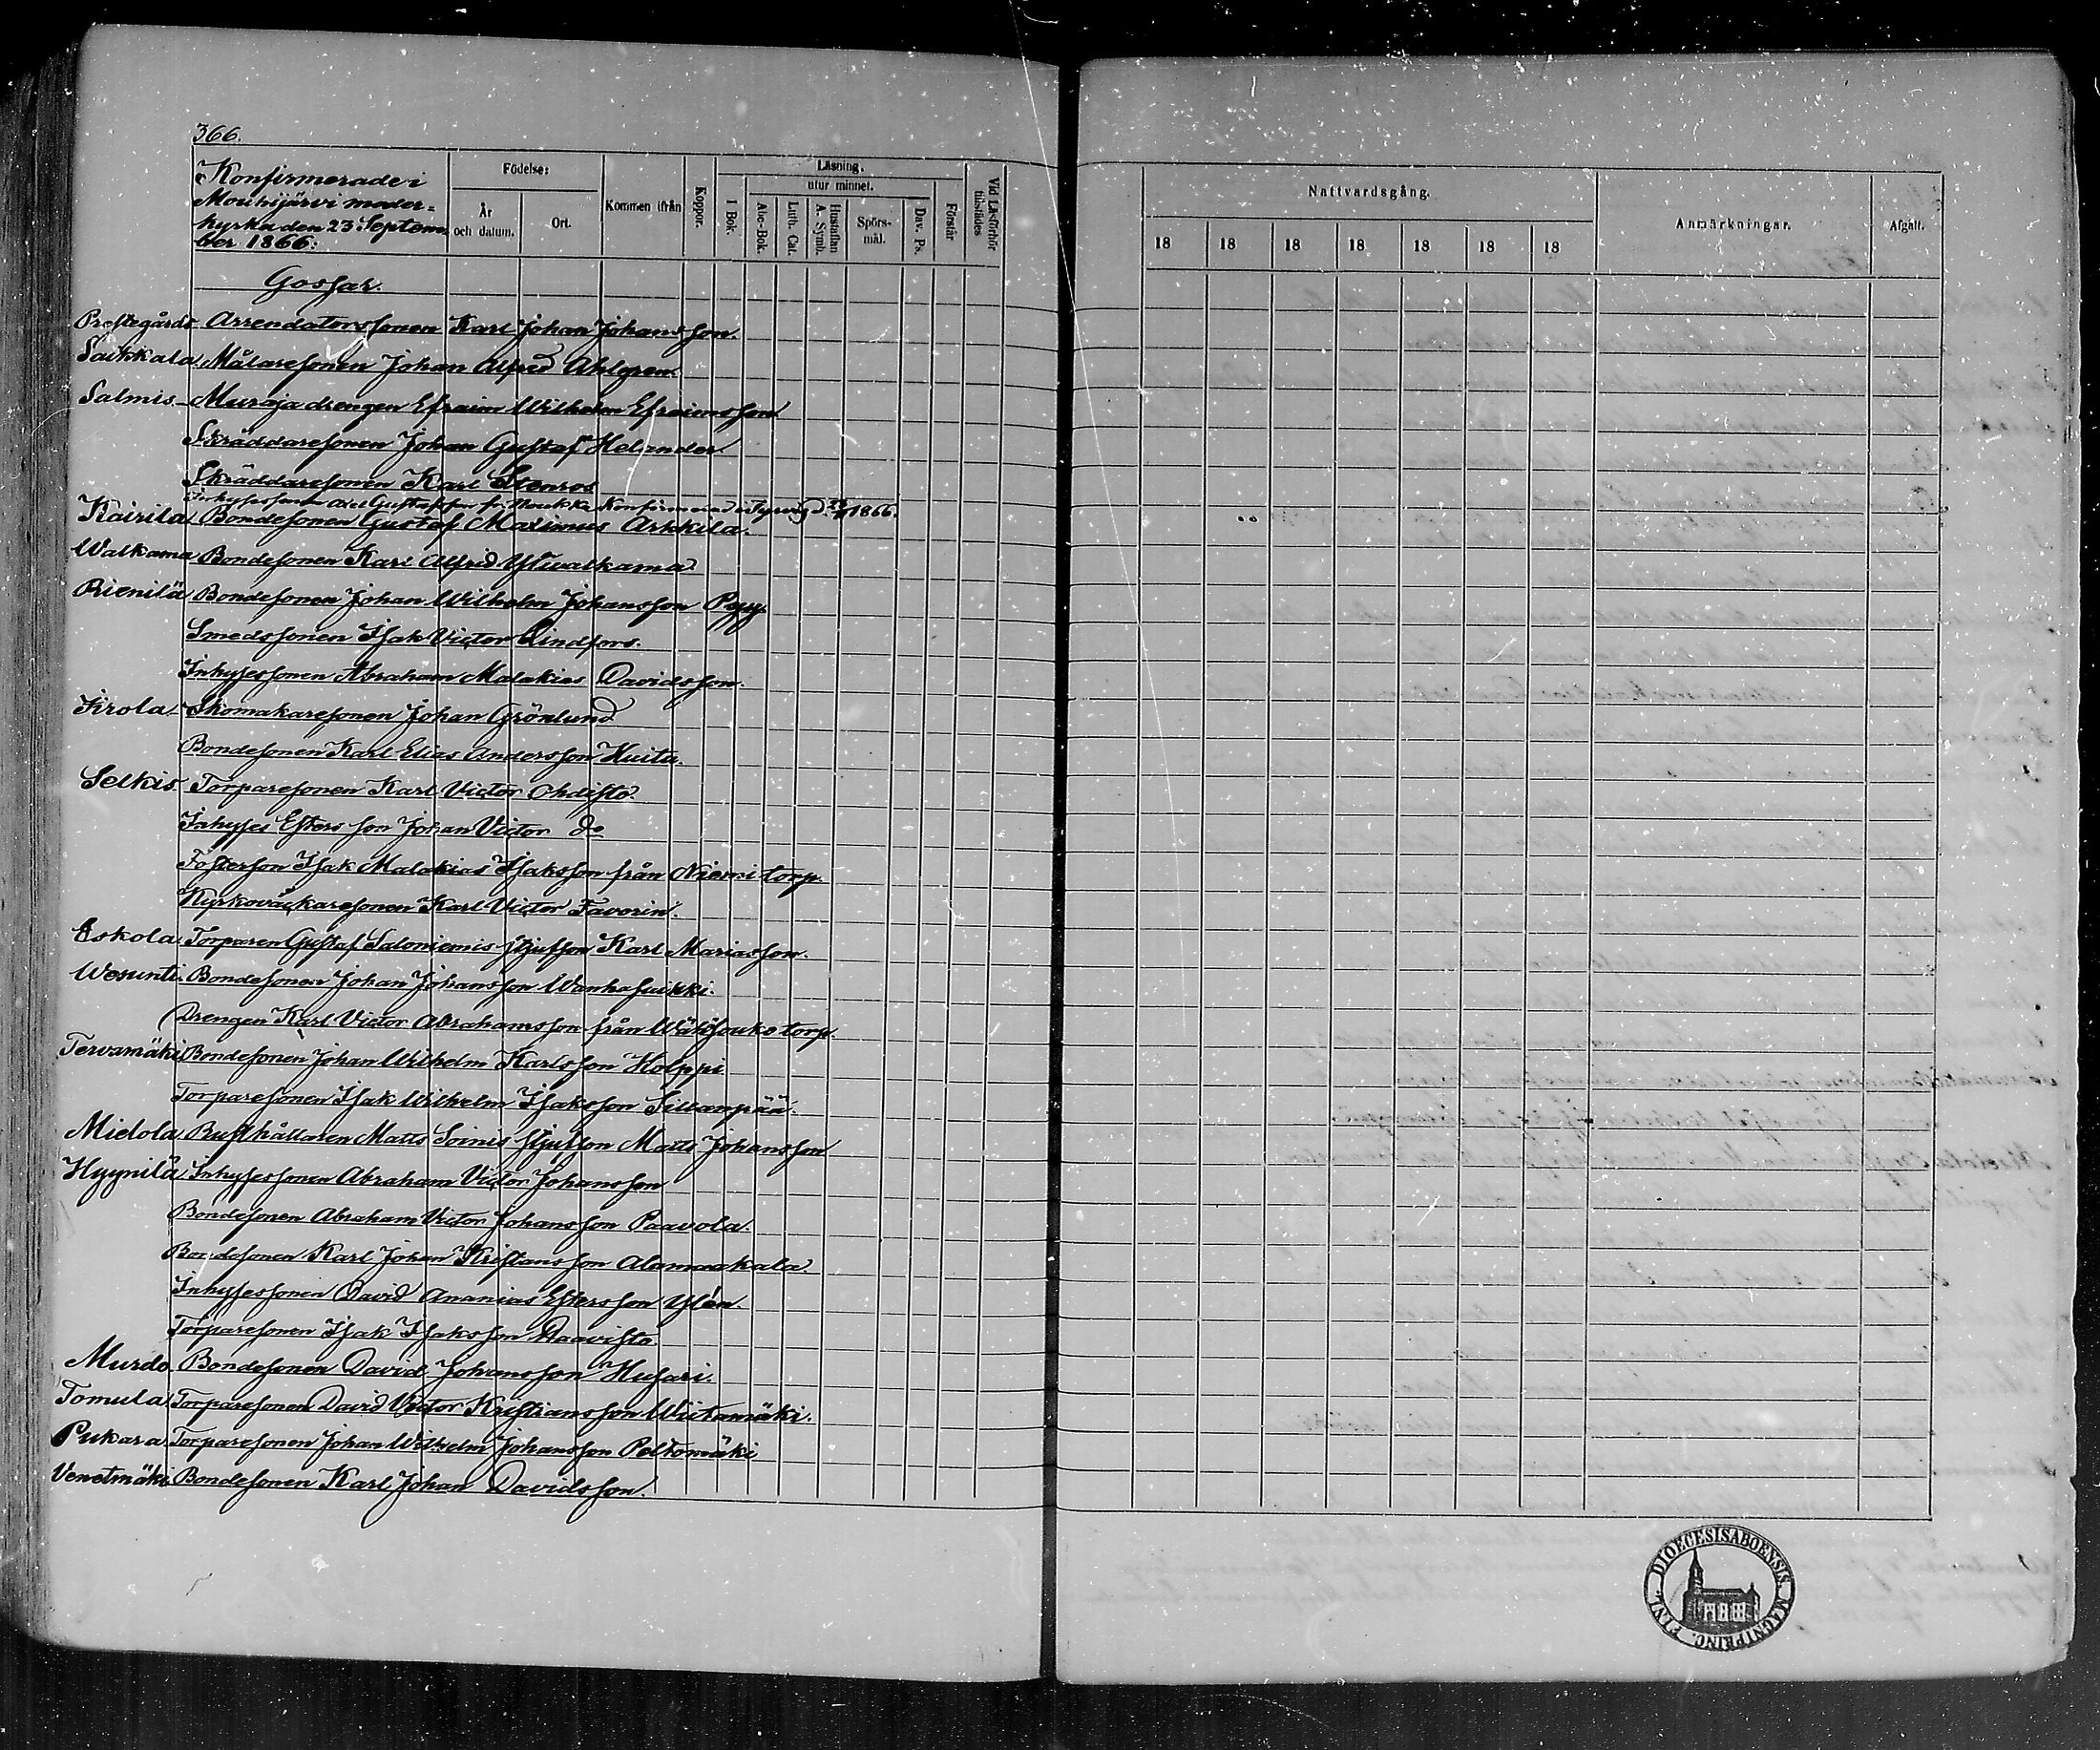 366.
Konfirmerade i
Mouhijärvi moder=
kyrka den 23 Septem
ber 1866:
Födelse:
År
och datum.
Ort.
Kommen ifrån
Koppor.
Läsning.
utur minnet.
I Bok.
Abc-Bok.
Luth. Cat.
Hustaflan
A. Symb.
Spörs-
mål.
Dav. Ps.
Förstår
Vid Läsförhör
tillstädes
Nattvardsgång.
18 18 18 18 18 18 18
Anmärkningar.
Afgått.
Gossar.
Prestegårds Arrendatorssonen Karl Johan Johansson.
Saikkala Målaresonen Johan Alfred Ahlgren.
Salmis Muraja drengen Efraim Wilhelm Efraimsson
Skräddaresonen Johan Gustaf Helander
Skräddaresonen Karl Stenros
Inhysessonen Axel Gustafsson fr. Konfirmerad i Tyrvis d. 1866.
Kairila Bondesonen Gustaf Maximus Arkkila.
Walkama Bondesonen Karl Alfrid Yliwalkama
Rienilä Bondesonen Johan Wilhelm Johansson Pyy
Smedssonen Isak Victor Lindfors.
Inhysessonen Abraham Malakias Davidsson.
Iirola Skomakaresonen Johan Grönlund
Bondesonen Karl Elias Andersson Kuita.
Selkis Torparesonen Karl Victor Ohdisto.
Inhyses Esters son Johan Victor do
Fosterson Isak Malakias Isaksson från Niemi torp.
Kyrkoväcktaresonen Karl Victor Favorin.
Eskola Torparen Gustaf Saloniemis stjufson Karl Mariasson.
Wesunti Bondesonen Johan Johansson Wanhasuikki.
Drengen Karl Victor Abrahamsson från Wähäsouko torp.
Tervamäki Bondesonen Johan Wilhelm Karlsson Holppi
Torparesonen Isak Wilhelm Isaksson Sillanpää.
Mielola Rusthållaren Matts Soinis stjufson Matts Johansson
Hyynilä Inhysessonen Abraham Victor Johansson
Bondesonen Abraham Victor Johansson Paavola.
Bondesonen Karl Johan Kristansson Alamaakala.
Inhysessonen David Ananias Estersson Ylén.
Torparesonen Isak Isaksson Haavisto
Murdo Bondesonen David Johansson Husari.
Tomula Torparesonen David Victor Kristiansson Wiitamäki.
Pukara Torparesonen Johan Wilhelm Johansson Peltomäki
Venetmäki Bondesonen Karl Johan Davidsson.
DIOECESIS ABOENSIS MAGNI PRINC. FINL.